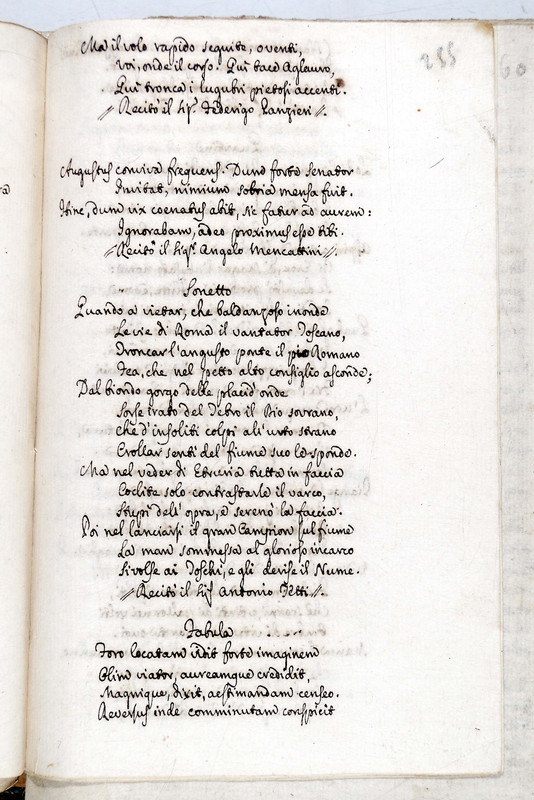 285
Ma il volo rapido seguite, o venti,
Voi, onde il corso. Quì tace Aglauro,
Quì tronca i lugubri pietosi accenti.
// Recitò il Sig.r Federigo Panzieri //.
Augustus conviva frequens. Dum forte Senator
Invitat, nimium sobria mensa fuit.
Hinc, dum vix coenatus abit, sic fatur ad aurem:
Ignorabam, adeo proximus esse tibi.
// Recitò il Sig.r Angelo Mencattini //.
Sonetto
Quando a vietar, che baldanzoso inonde
Le vie di Roma il vantator Toscano,
Troncar l'angusto ponte il pio Romano
Fea, che nel petto alto consiglio asconde;
Dal biondo gorgo delle placid' onde
Sorse irato del Tebro il Dio sovrano,
Che d'insoliti colpi all' urto strano
Crollar sentì del fiume suo le sponde.
Ma nel veder di Etruria tutta in faccia
Coclite solo contrastarle il varco,
Stupì dell' opra, e serenò la faccia.
Poi nel lanciarsi il gran Campion sul fiume
La man sommessa al glorioso incarco
Si volse ai Toschi, e gli derise il Nume.
// Recitò il Sig.r Antonio Petti //.
Fabula
Foro locatam vidit forte imaginem
Olim viator, aureamque credidit,
Magnique, dixit, aestimandam censeo.
Reversus inde comminutam conspicit